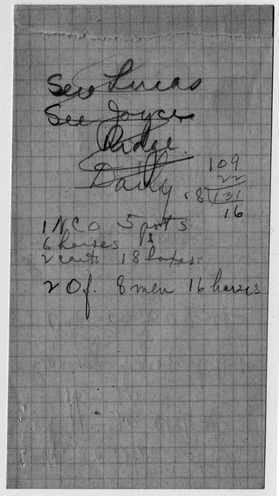 See Lucas
See Joyce
Ridge.
Daily
109
22
8 131
16
1 NCO 5 pts
6 horses
2 carts 18 boxes.
2 Of. 8 men 16 horses